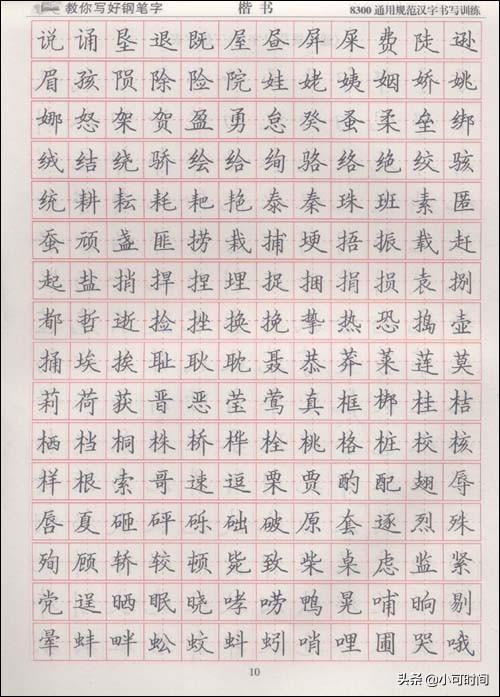 教你写好钢笔字 楷书 8300通用规范汉字书写训练
说诵垦退既屋昼屏屎费陡逊
眉孩陨除险院娃姥姨姻娇姚
娜怒架贺盈勇怠癸蚤柔垒绑
绒结绕骄绘给绚骆络绝绞骇
统耕耘耗耙艳泰秦珠班素匿
蚕顽盏匪捞栽捕埂捂振载赶
起盐捎捍捏埋捉捆捐损袁捌
都哲逝捡挫换挽挚热恐捣壶
捅埃挨耻耿耽聂恭莽莱莲莫
莉荷获晋恶莹莺真框梆桂桔
栖档桐株桥桦栓桃格桩校核
样根索哥速逗栗贾酌配翅辱
唇夏砸砰砾础破原套逐烈殊
殉顾轿较顿毙致柴桌虑监紧
党逞晒眠晓哮唠鸭晃哺晌剔
晕蚌畔蚣蚊蚪蚓哨哩圃哭哦
10
头条 @小可时间